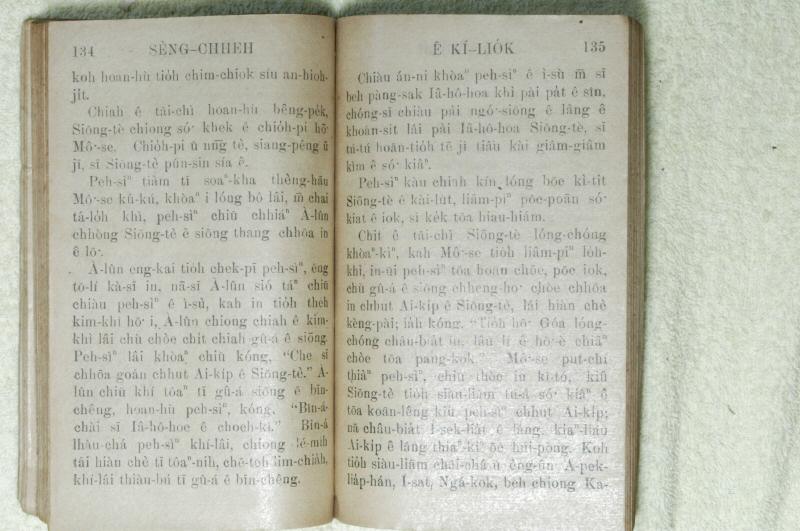 134 SÈNG-CHHEH
koh hoan-hù tio̍h chim-chiok siú an-hioh-
ji̍t.
Chiah ê tāi-chì hoan-hù bêng-pe̍k,
Siōng-tè chiong só͘ khek ê chio̍h-pi hō͘
Mô͘-se. Chio̍h-pi ū nn̄g tè, siang-pêng ū
jī, sī Siōng-tè pún-sin siá ê.
Peh-sìⁿ tiàm tī soaⁿ-kha thèng-hāu
Mô͘-se kú-kú, khòaⁿ i lóng bô lâi, m̄ chai
tá-lo̍h khì, peh-sìⁿ chiū chhiáⁿ À-lûn
chhòng Siōng-tè ê siōng thang chhōa in
ê lō͘.
À-lûn eng-kai tio̍h chek-pī peh-sìⁿ, ēng
tō-lí kà-sī in, nā-sī À-lûn sió táⁿ chiū
chiàu peh-sìⁿ ê ì-sù, kah in tio̍h the̍h
kim-khì hō͘ i, À-lûn chiong chiah ê kim-
khì lâi chù chòe chit chiah gû-á ê siōng.
Peh-sìⁿ lâi khòaⁿ chiū kóng, “Che sī
chhōa goán chhut Ai-ki̍p ê Siōng-tè.” À-
lûn chiū khí tôaⁿ tī gû-á siōng ê bīn-
chêng, hoan-hù peh-sìⁿ, kóng, “Bîn-á-
chài sī Iâ-hô-hoa ê choeh-kî.” Bîn-á
lhàu-chá peh-sìⁿ khí-lâi, chiong lé-mi̍h
tāi hiàn chè tī tôaⁿ-nih, chē-teh lim-chia̍h,
khí-lâi thiàu-bú tī gû-á ê bīn-chêng.
Ê KÍ-LIO̍K 135
Chiàu án-ni khòaⁿ peh-sìⁿ ê ì-sù m̄ sī
beh pàng-sak Iâ-hô-hoa khì pài pa̍t ê sîn,
chóng-sī chiàu pài ngó͘-siōng ê lâng ê
khoán-sit lâi pài Iâ-hô-hoa Siōng-tè, sī
tú-tú hoān-tio̍h tē jī tiâu kài giâm-giâm
kìm ê só͘ kiâⁿ.
Peh-sìⁿ kàu chiah kín, lóng bōe kì-tit
Siōng-tè ê kài-lu̍t, liâm-piⁿ pōe-poān só͘
kiat ê iok, sī ke̍k tōa hiau-hiám.
Chit ê tāi-chì Siōng-tè lóng-chóng
khòaⁿ-kìⁿ, kah Mô͘-se tio̍h liâm-piⁿ lo̍h-
khì, in-ūi peh-sìⁿ tōa hoān chōe, pōe iok,
chù gû-á ê siōng chheng-ho͘ chòe chhōa
in chhut Ai-ki̍p ê Siōng-tè, lâi hiàn chè
kèng-pài; ia̍h kóng, “Tio̍h hō͘ Góa lóng-
chóng châu-bia̍t in, lâu lí ê hō͘-è chiâⁿ
chòe tōa pang-kok.” Mô͘-se put-chí
thiàⁿ peh-sìⁿ, chiū thòe in kî-tó, kiû
Siōng-tè tio̍h siàu-liām tú-á só͘ kiâⁿ ê
tōa koân-lêng kiù peh-sìⁿ chhut Ai-ki̍p;
nā châu-bia̍t Í-sek-lia̍t ê lâng, kiaⁿ-liáu
Ai-ki̍p ê lâng thiaⁿ-kìⁿ ōe húi-pòng. Koh
tio̍h siàu-liām chái-chá ū èng-ún A-pek-
lia̍p-hán, Í-sat, Ngá-kok, beh chiong Ka-